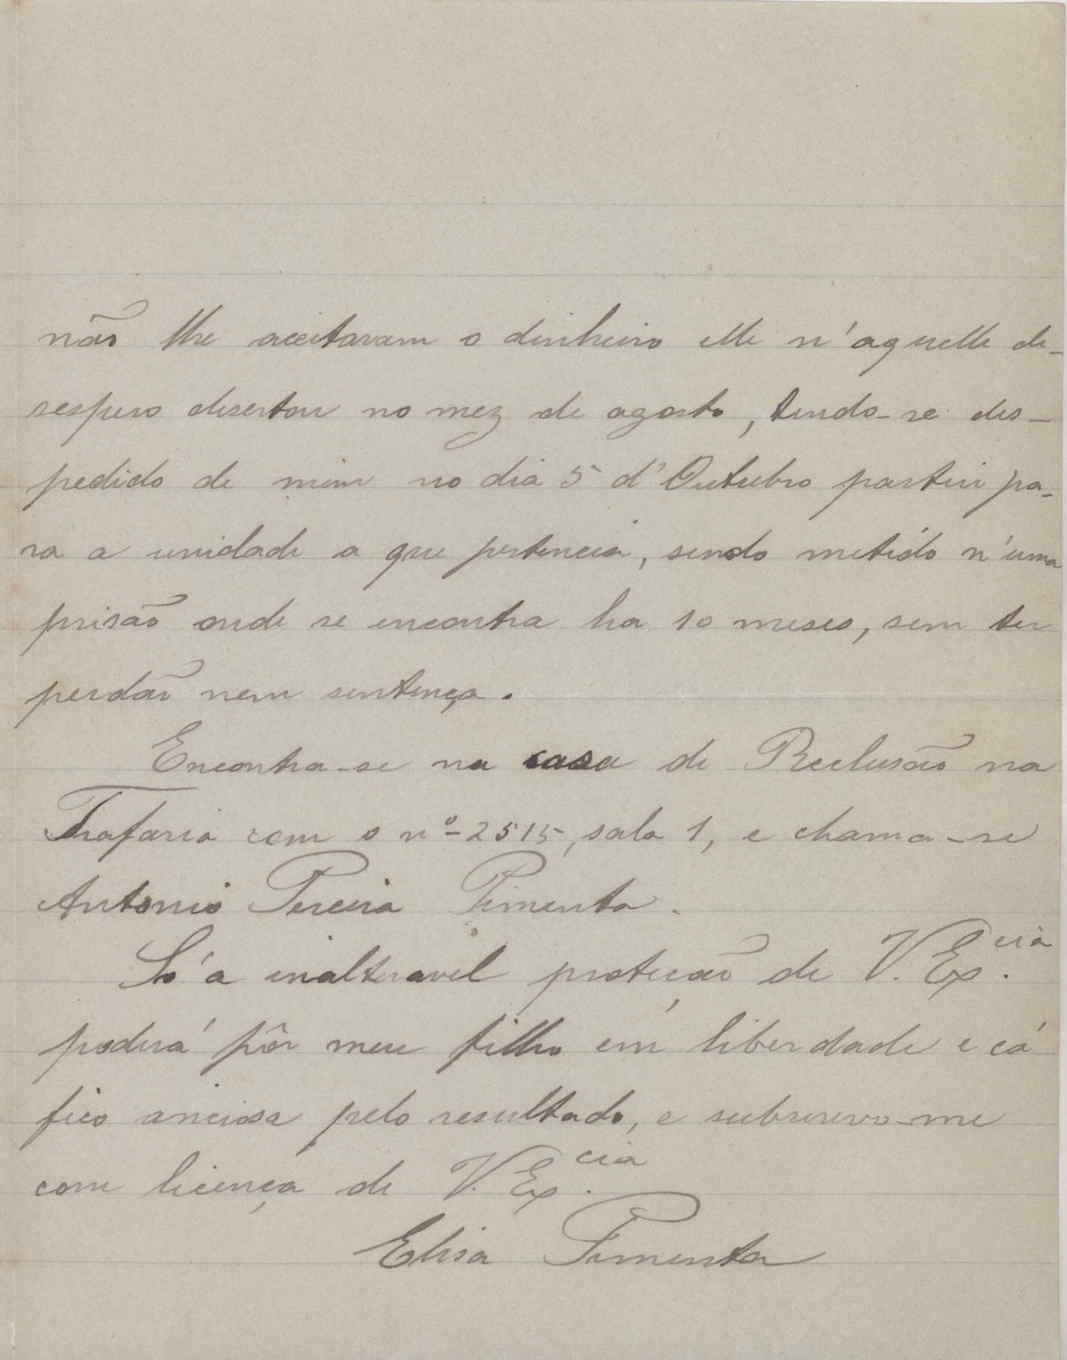 não lhe aceitaram o dinheiro elle n'aquelle de-
sespero desertou no mez de agosto, tendo-se des-
pedido de mim no dia 5 d'Outubro partiu pa-
ra a unidade a que pertencia, sendo metido n'uma
prisão onde se encontra ha 10 meses, sem ter
perdão nem sentença.
Encontra-se na casa de Reclusão na
Trafaria com o nº 2515, sala 1, e chama-se
Antonio Pereira Pimenta.
Só a inalteravel proteção de V. Ex.cia
poderá pôr meu filho em liberdade e cá
fico anciosa pelo resultado, e subscrevo-me
com licença de V. Ex.cia
Elisa Pimenta